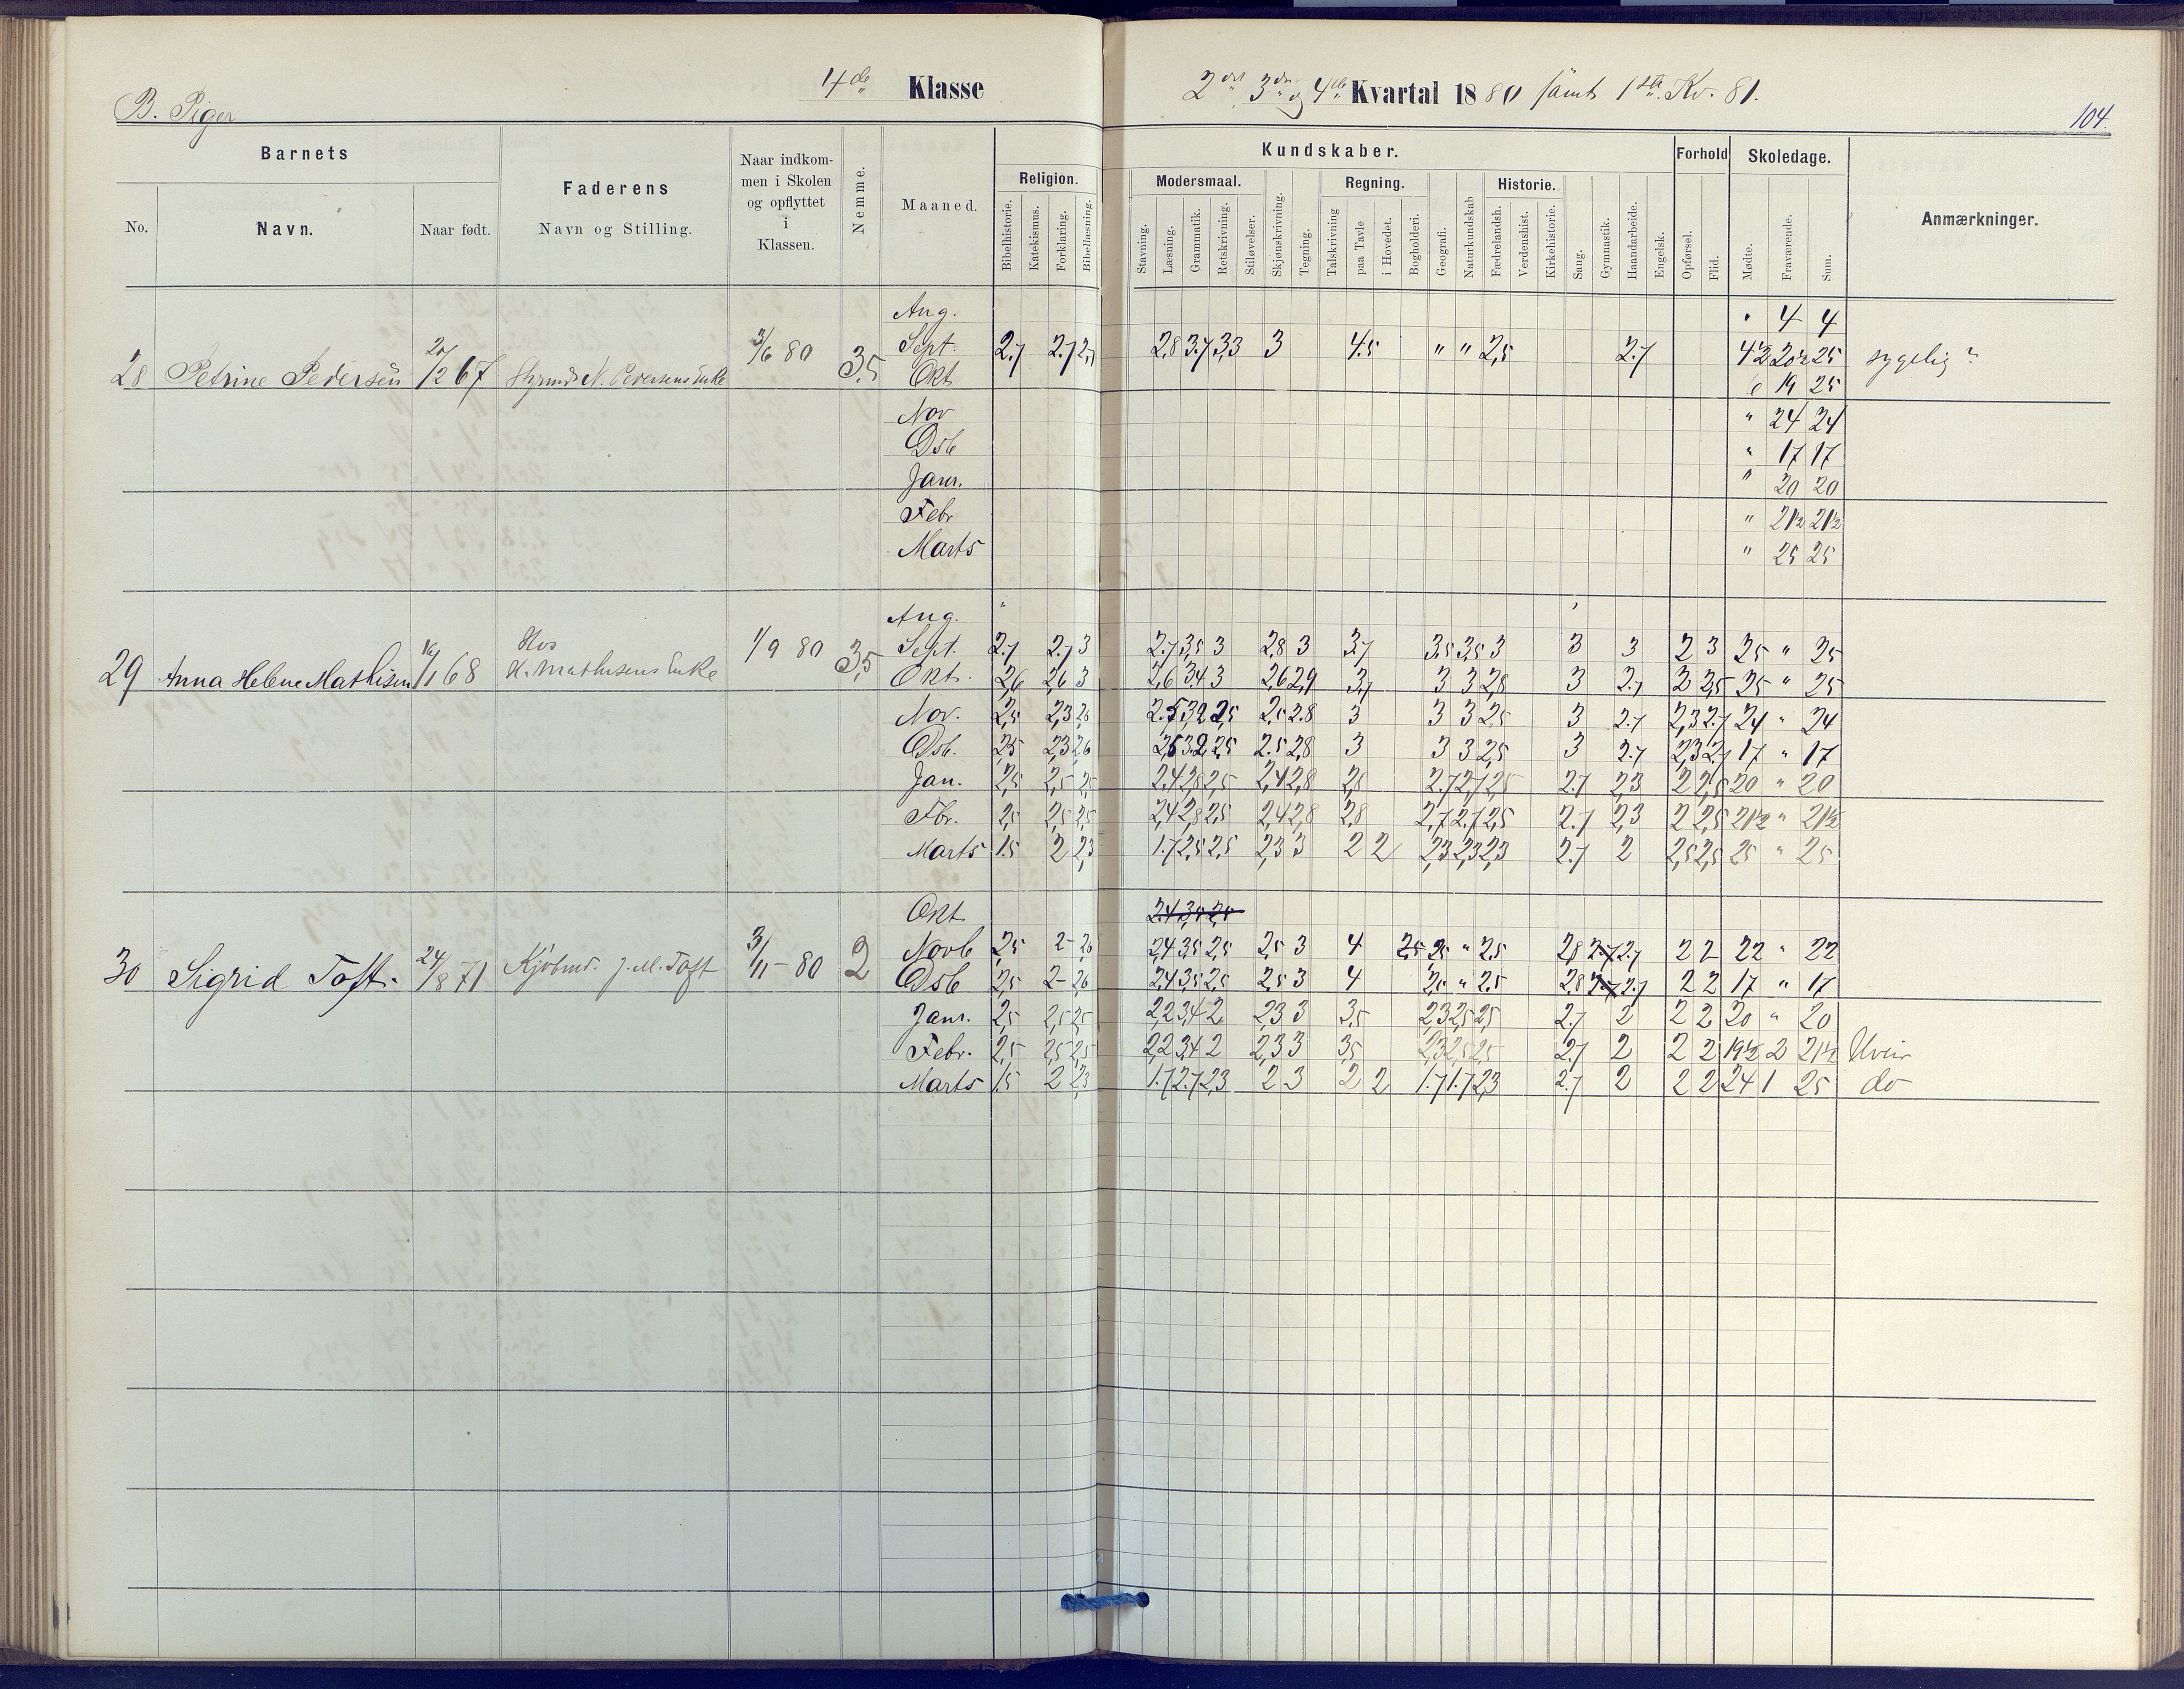 B. Piger
4de Klasse
2det 3die og 4de Kvartal 1880 samt 1ste Kv. 81.
104.
Barnets
No.
Navn.
Naar født.
Faderens
Navn og Stilling.
Naar indkom-
men i Skolen
og opflyttet
i
Klassen.
Nemme.
Maaned.
Kundskaber.
Religion.
Bibelhistorie.
Katekismus.
Forklaring.
Bibellæsning.
Modersmaal.
Stavning.
Læsning.
Grammatik.
Retskrivning.
Stiløvelser.
Skjønskrivning.
Tegning.
Regning.
Talskrivning
paa Tavle
i Hovedet.
Bogholderi.
Geografi.
Naturkundskab
Historie.
Fædrelandsh.
Verdenshist.
Kirkehistorie.
Sang.
Gymnastik.
Haandarbeide.
Engelsk.
Forhold
Opførsel.
Flid.
Skoledage.
Mødte.
Fraværende.
Sum.
Anmærkninger.
28 Petrine Pedersen 20/12 67 N. Pedersens Enke 3/6 80 3,5
Aug. " 4 4
Sept. 2.7 2.7 2,7 2,8 3.7 3,3 3 4.5 " " 2,5 2.7 4½ 20½ 25 sygelig?
Okt 6 19 25
Nov " 24 24
Dsb " 17 17
Janr. " 20 20
Febr " 21½ 21½
Marts " 25 25
29 Anna Helene Mathisen 16/1 68 Hos H. Mathisens Enke 1/9 80 3,5
Aug. "
Sept. 2.7 2.7 3 2.7 3,5 3 2,8 3 3,7 3,5 3,5 3 3 3 2 3 25 " 25
Okt. 2,6 2,6 3 2,6 3,4 3 2,6 2,9 3,7 3 3 2,8 3 2.7 2 2,5 25 " 25
Nov. 2,5 2,3 2,6 2.5 3,2 2,5 2,5 2.8 3 3 3 2,5 3 2.7 2,3 2.7 24 " 24
Dsb. 2,5 2,3 2,6 2,5 3.2 2,5 2.5 2,8 3 3 3 2,5 3 2.7 2,3 2,7 17 " 17
Jan. 2,5 2,5 2,5 2,4 2,8 2,5 2,4 2,8 2,8 2.7 2,7 2,5 2.7 2,3 2 2,5 20 " 20
Fbr. 2,5 2,5 2,5 2,4 2,8 2,5 2,4 2,8 2.8 2,7 2.7 2,5 2.7 2,3 2 2,5 21½ " 21½
Marts 1.5 2 2,3 1.7 2,5 2,5 2,3 3 2 2 2,3 2,3 2,3 2.7 2 2,5 2,5 25 " 25
30 Sigrid Toft. 24/8 71 Kjøbmd. J. M. Toft 3/11 - 80 2
Okt 2.4 3,5 2,5
Novb 2,5 2- 2,6 2,4 3,5 2,5 2,5 3 4 2,5 2,5 " 2.5 2,8 2.7 2.7 2 2 22 " 22
Dsb 2,5 2- 2,6 2,4 3,5 2,5 2,5 3 4 2,5 " 2.5 2,8 2,7 2.7 2 2 17 " 17
Janr. 2,5 2,5 2,5 2,2 3,4 2 2,3 3 3,5 2,3 2,5 2,5 2.7 2 2 2 20 " 20
Febr. 2,5 2,5 2,5 2,2 3,4 2 2,3 3 3,5 2,3 2,5 2,5 2.7 2 2 2 19½ 2 21½ Uveir
Marts 1.5 2 2,3 1.7 2.7 2,3 2 3 2 2 1.7 1.7 2,3 2.7 2 2 2 24 1 25 do